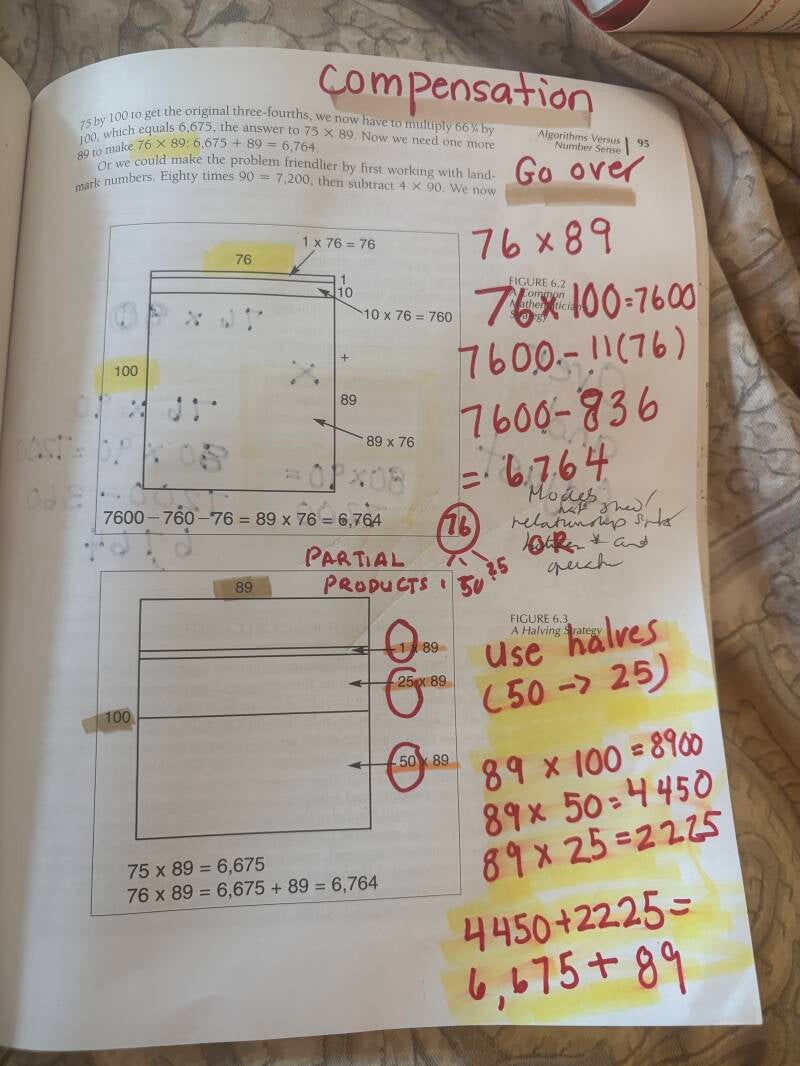 Compensation
75 by 100 to get the original three-fourths, we now have to multiply 66¾ by
100, which equals 6,675, the answer to 75 × 89. Now we need one more
89 to make 76 × 89: 6,675 + 89 = 6,764.
Or we could make the problem friendlier by first working with land-
mark numbers. Eighty times 90 = 7,200, then subtract 4 × 90. We now
Algorithms Versus
Number Sense
95
Go over
76 x 89
FIGURE 6.2
A Common
Mathematician's
Strategy
76 x 100 = 7600
7600 - 11(76)
7600 - 836
= 6,764
76
1 x 76 = 76
1
10
10 x 76 = 760
+
100
89
89 x 76
7600 – 760 – 76 = 89 x 76 = 6,764
Models
relationship
and
OR
76
1 50 25
PARTIAL
PRODUCTS
89
1 x 89
25 x 89
100
50 x 89
75 x 89 = 6,675
76 x 89 = 6,675 + 89 = 6,764
FIGURE 6.3
A Halving Strategy
use halves
(50 → 25)
89 x 100 = 8900
89 x 50 = 4450
89 x 25 = 2225
4450 + 2225 =
6,675 + 89